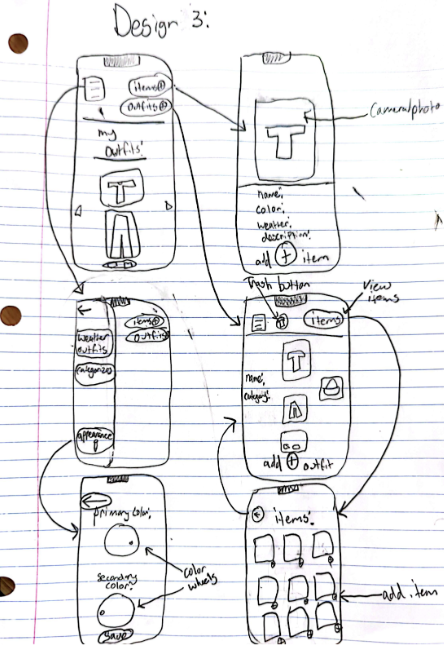 Design 3:
items+
outfits+
my
outfits:
camera/photo
name:
color:
weather:
description:
add + item
Trash button
view
items
items
weather
outfits
categorize
appearance
items+
outfits
name:
category:
add + outfit
primary color:
secondary
color:
color
wheels
save
items:
add item